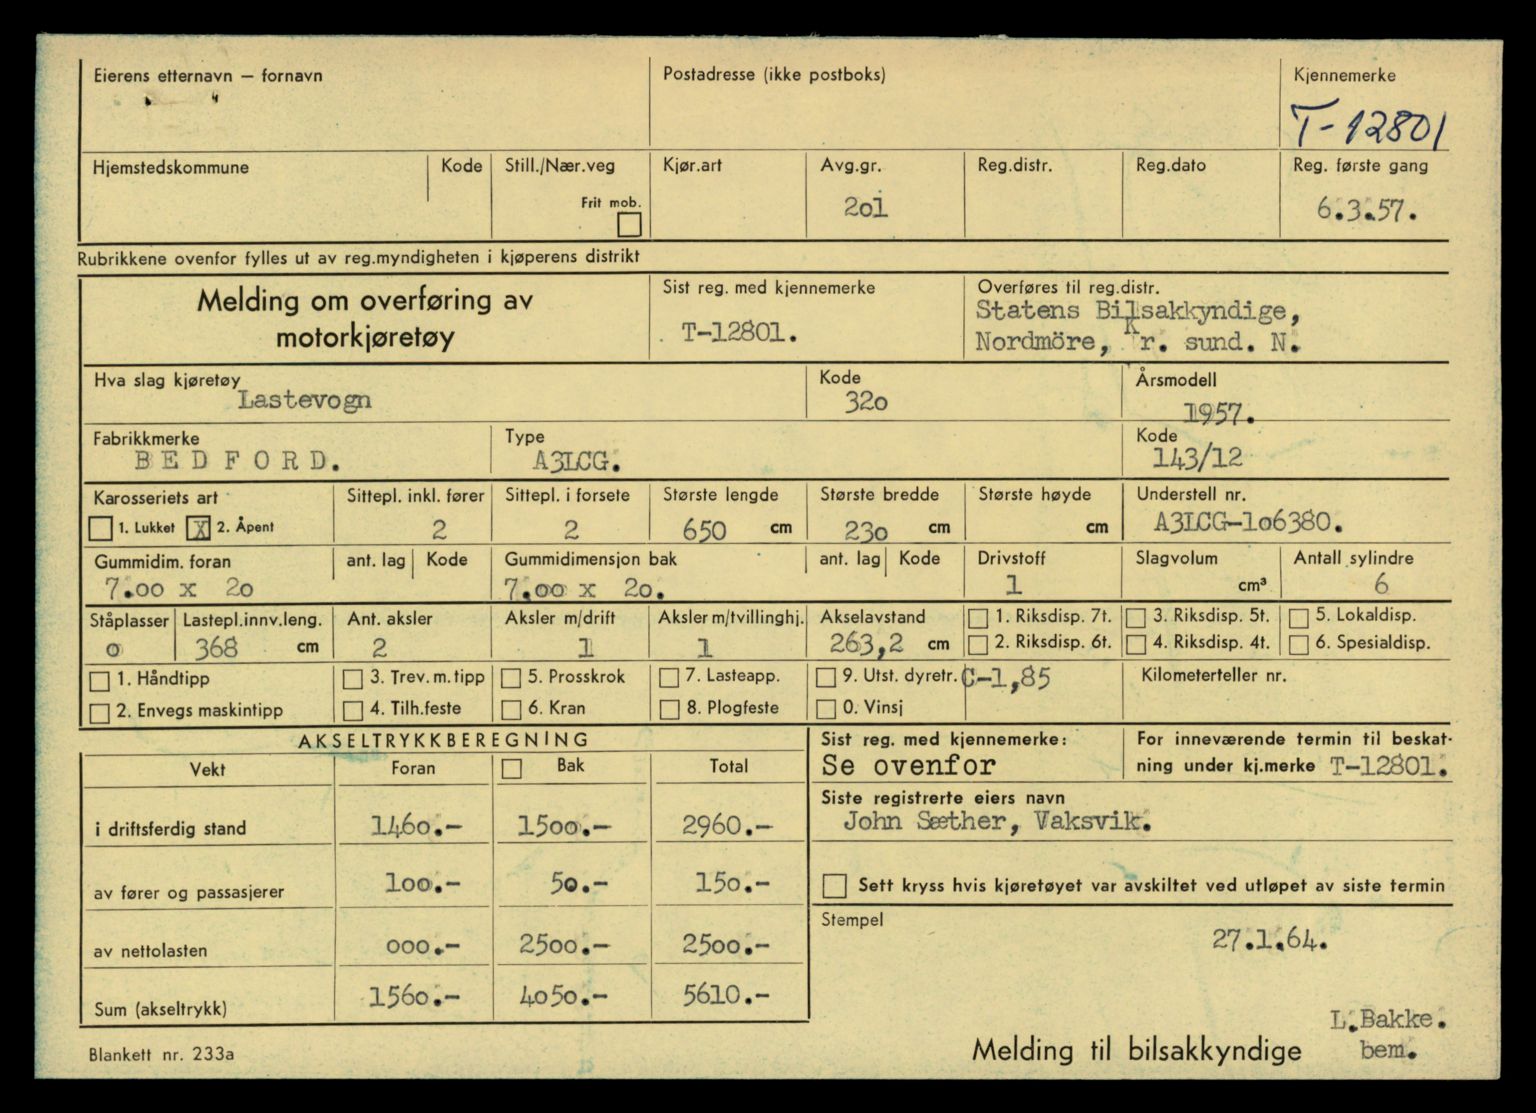 Eierens etternavn — fornavn
Postadresse (ikke postboks)
Kjennemerke
T-12801
Hjemstedskommune
Kode
Still./Nær.veg
Frit mob.
Kjør.art
Avg.gr.
2o1
Reg.distr.
Reg.dato
Reg. første gang
6.3.57.
Rubrikkene ovenfor fylles ut av reg.myndigheten i kjøperens distrikt
Melding om overføring av
motorkjøretøy
Sist reg. med kjennemerke
T-12801.
Overføres til reg.distr.
Statens Bilsakkyndige,
Nordmöre, Kr. sund. N.
Hva slag kjøretøy
Lastevogn
Kode
32o
Årsmodell
1957.
Fabrikkmerke
BEDFORD.
Type
A3LCG.
Kode
143/12
Karosseriets art
1. Lukket X 2. Åpent
Sittepl. inkl. fører
2
Sittepl. i forsete
2
Største lengde
650 cm
Største bredde
23o cm
Største høyde
cm
Understell nr.
A3LCG-1o6380.
Gummidim. foran
7.oo x 2o
ant. lag
Kode
Gummidimensjon bak
7.oo x 2o.
ant. lag
Kode
Drivstoff
1
Slagvolum
cm³
Antall sylindre
6
Ståplasser
o
Lastepl.innv.leng.
368 cm
Ant. aksler
2
Aksler m/drift
1
Aksler m/tvillinghj.
1
Akselavstand
263,2 cm
1. Riksdisp. 7t.
2. Riksdisp. 6t.
3. Riksdisp. 5t.
4. Riksdisp. 4t.
5. Lokaldisp.
6. Spesialdisp.
1. Håndtipp
2. Envegs maskintipp
3. Trev. m. tipp
4. Tilh.feste
5. Prosskrok
6. Kran
7. Lasteapp.
8. Plogfeste
9. Utst. dyretr.
0. Vinsj
C-1,85
Kilometerteller nr.
AKSELTRYKKBEREGNING
Vekt
Foran
Bak
Total
i driftsferdig stand
146o.- 15oo.- 2960.-
av fører og passasjerer
1oo.- 5o.- 15o.-
av nettolasten
ooo.- 25oo.- 25oo.-
Sum (akseltrykk)
156o.- 4o5o.- 5610.-
Sist reg. med kjennemerke:
Se ovenfor
For inneværende termin til beskat-
ning under kj.merke T-12801.
Siste registrerte eiers navn
John Sæther, Vaksvik.
Sett kryss hvis kjøretøyet var avskiltet ved utløpet av siste termin
Stempel
27.1.64.
L.Bakke.
bem.
Blankett nr. 233a
Melding til bilsakkyndige